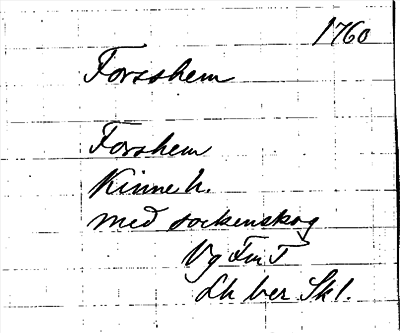 1760
Forsshem
Forshem
Kinne h.
med sockenskog
Vg FmT
Lk ber Skl.